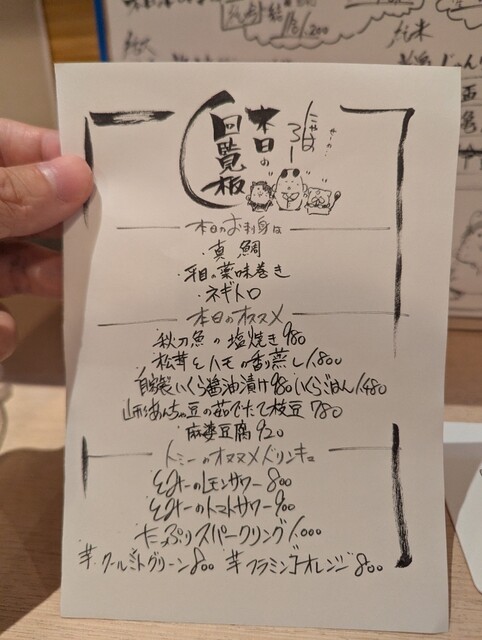 本日の
回覧板
本日のお刺身は
・真鯛
・平目の薬味巻き
・ネギトロ
本日のオススメ
・秋刀魚の塩焼き 980
・松茸とハモの香り蒸し 1,800
自家製いくら醤油漬け 980 いくらごはん 1,480
山形あんちゃ豆の茹でたて枝豆 780
・麻婆豆腐 920
トミーのオススメドリンクは
とみーのレモンサワー 800
とみーのトマトサワー 900
たっぷりスパークリング 1,000
芋 クールミントグリーン 800 芋 フラミンゴオレンジ 800